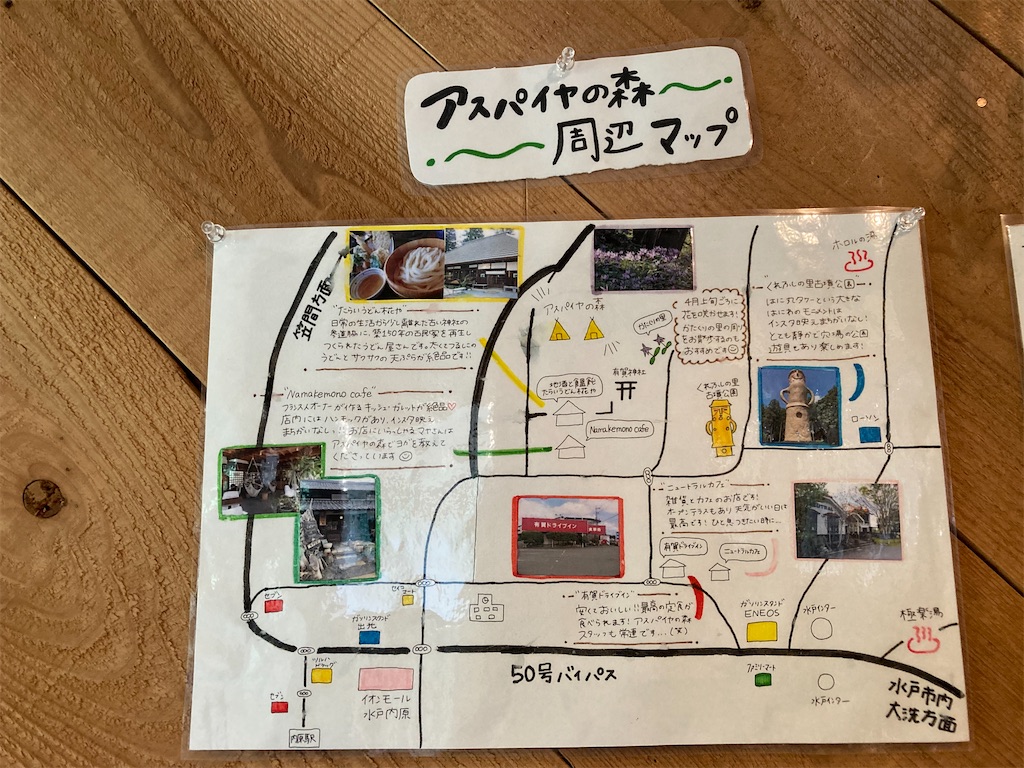 アスパイヤの森
周辺マップ
笠間方面
"たらいうどん花や"
日常の生活から少し離れた古い神社の
参道脇に築150年の古民家を再生し
つくられたうどん屋さんです。たぐってよるしの
うどんとサクサクの天ぷらが絶品です!!
"Namakemono cafe"
フランス人オーナーが作るキッシュ・ガレットが絶品♡
店内にはハンモックがあり、インスタ映え
まちがいなし。お店にいらっしゃるマヤさんは
アスパイヤの森でヨガを教えて
くださっています☺
アスパイヤの森
かたくりの里
4月上旬ごろに
花を咲かせます!
かたくりの里の周り
をお散歩するのも
おすすめです☺
有賀神社
地酒と饂飩
たらいうどん花や
Namakemono cafe
くれふしの里
古墳公園
ホロルの湯
"くれふしの里古墳公園"
はに丸タワーという大きな
はにわのモニュメントは
インスタ映えまちがいなし!
とても静かで穴場の公園
遊具もあり楽しめます!
ローソン
"ニュートラルカフェ"
雑貨とカフェのお店です!
オープンテラスもあり天気がいい日は
最高です!ひと息つきたい時に…
有賀ドライブイン
有賀ドライブイン
ニュートラルカフェ
"有賀ドライブイン"
安くておいしい!!最高の定食が
食べられます!アスパイヤの森
スタッフも常連です…(笑)
セブン
セイコーマート
ガソリンスタンド
出光
ガソリンスタンド
ENEOS
水戸インター
極楽湯
ツルハドラッグ
セブン
イオンモール
水戸内原
内原駅
50号バイパス
ファミリーマート
水戸インター
水戸市内
大洗方面